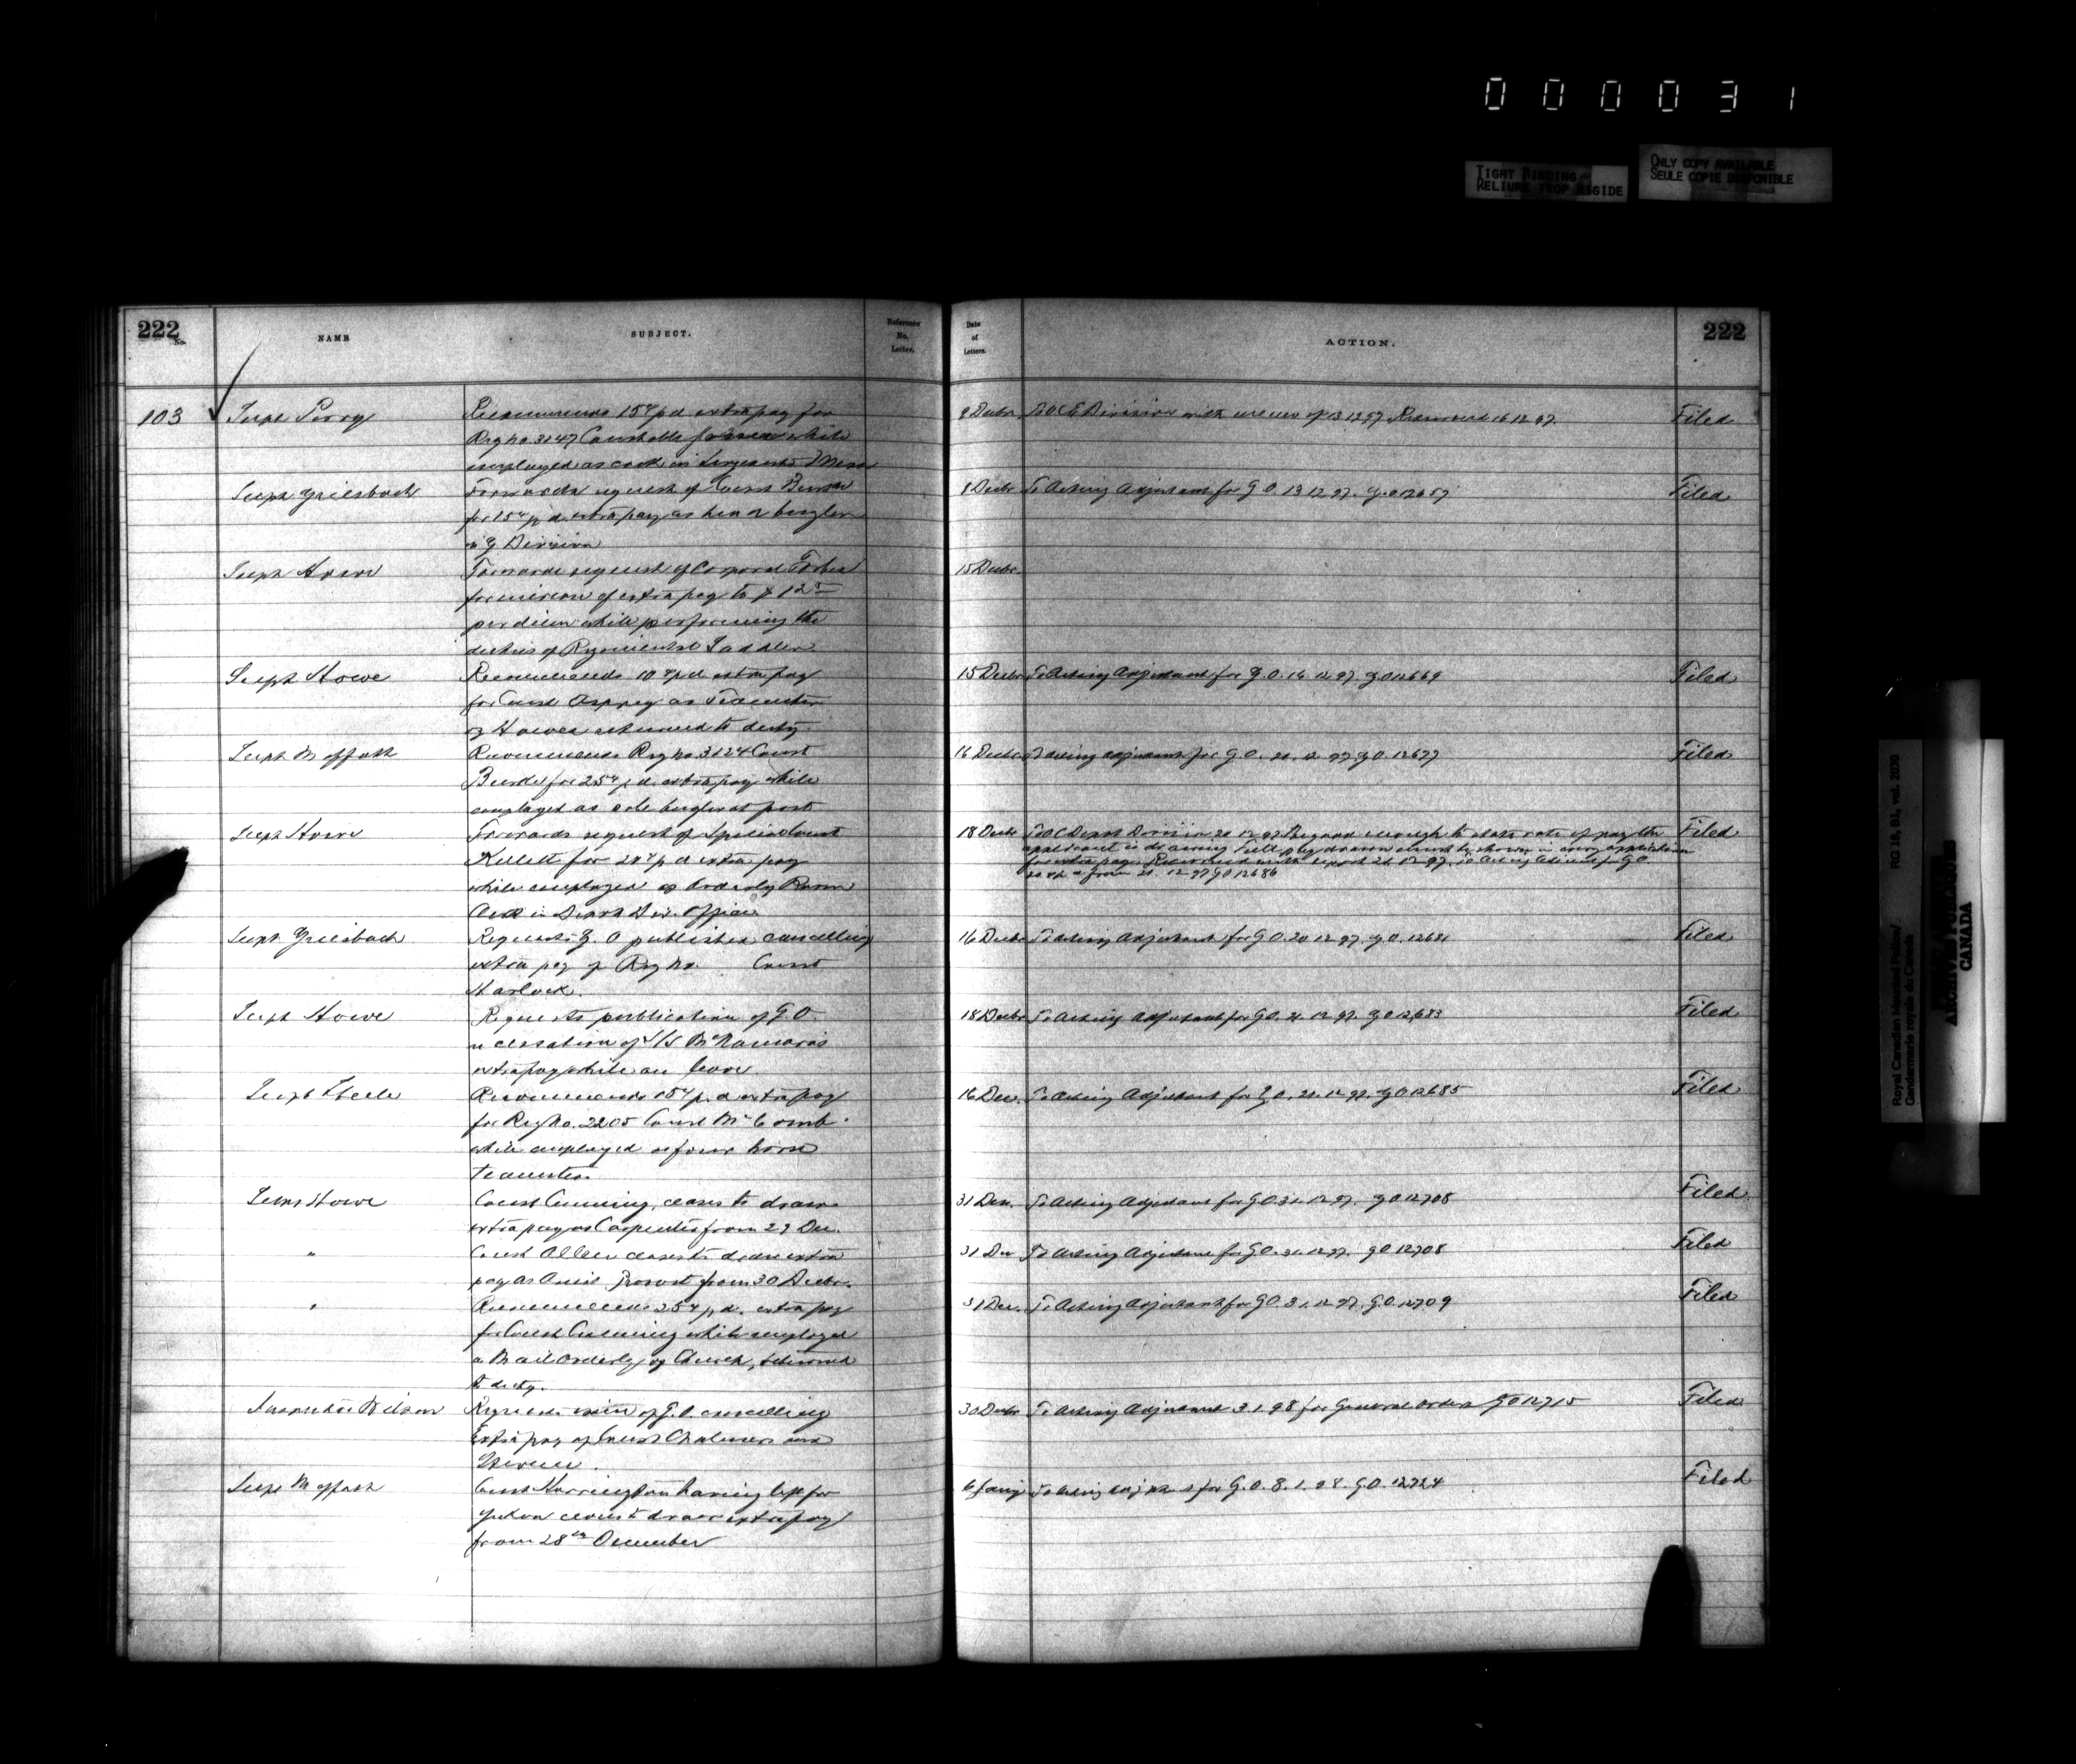 0 0 0 0 3 1
TIGHT BINDING
RELIURE TROP RIGIDE
ONLY COPY AVAILABLE
SEULE COPIE DISPONIBLE
222
No.
NAME
SUBJECT.
Reference
No.
Letter.
Date
of
Letters.
ACTION.
222
103 Supt Perry
Recommends 15¢ p.d. extra pay for
Reg No. 3247 Constable while
employed as cook in Sergeants Mess
9 Decbr. To O.C. Division with 13.12.97 Returned 16.12.97.
Filed
Supt Griesbach
Forwards request of Const
for 15¢ p.d. extra pay as bugler
G Division
8 Decbr To Acting Adjutant for G.O. 13.12.97. G.O. 12657
Filed
Supt Howe
Forwards request of Corporal Forbes
for of extra pay to $1.25
per diem while performing the
duties of Regimental Saddler
15 Decbr.
Supt Howe
Recommends 10¢ p.d. extra pay
for Const as Teamster
Howes returned to duty
15 Decbr To Acting Adjutant for G.O. 16.12.97. G.O. 12669
Filed
Supt Moffatt
Recommends Reg No. 3124 Const
for 25¢ p.d. extra pay while
employed as sole bugler at post
16 Decbr To Acting Adjutant for G.O. 21.12.97. G.O. 12677
Filed
Supt Howe
Forwards request of Special Const
Kellett for p.d. extra pay
while employed as Orderly Room
Clerk in Depot Div. Office
18 Decbr To O.C. Depot Division 20.12.97 Be good enough to state rate of pay the
applicant is drawing. Full pay drawn must be shown in every application
for extra pay. Returned with report 21.12.97. To Acting Adjutant for G.O.
from 21.12.97 G.O. 12686
Filed
Supt Griesbach
Requests G.O. published cancelling
extra pay of Reg No. Const
Harlock.
16 Decbr To Acting Adjutant for G.O. 20.12.97. G.O. 12681
Filed
Supt Howe
Requests publication of G.O.
cessation of S/S McNamara's
extra pay while on leave.
18 Decbr To Acting Adjutant for G.O. 21.12.97. G.O. 12683
Filed
Supt Steele
Recommends 15¢ p.d. extra pay
for Reg No. 2205 Const McComb
while employed as four horse
teamster.
16 Dec. To Acting Adjutant for G.O. 21.12.97. G.O. 12685
Filed
Supt Howe
Const Cumming, ceases to draw
extra pay as Carpenter from 29 Dec.
31 Dec. To Acting Adjutant for G.O. 31.12.97. G.O. 12708
Filed
"
Const Allen ceases to draw extra
pay as Asst Provost from 30 Decbr.
31 Dec To Acting Adjutant for G.O. 31.12.97. G.O. 12708
Filed
"
Recommends 25¢ p.d. extra pay
for Const Cumming while employed
as Mail Orderly, Church, returned
to duty.
31 Dec. To Acting Adjutant for G.O. 31.12.97. G.O. 12709
Filed
Inspector Wilson
Requests of G.O. cancelling
Extra pay of Const Chalmers and

30 Decbr To Acting Adjutant 3.1.98 for General Order G.O. 12715
Filed
Supt Moffatt
Const Harrington having left for
Yukon ceases to draw extra pay
from 28th December
6 Jany To Acting Adjutant for G.O. 8.1.98. G.O. 12724
Filed
Royal Canadian Mounted Police/ RG 18, B1, vol. 2030
Gendarmerie royale du Canada
ARCHIVES
CANADA